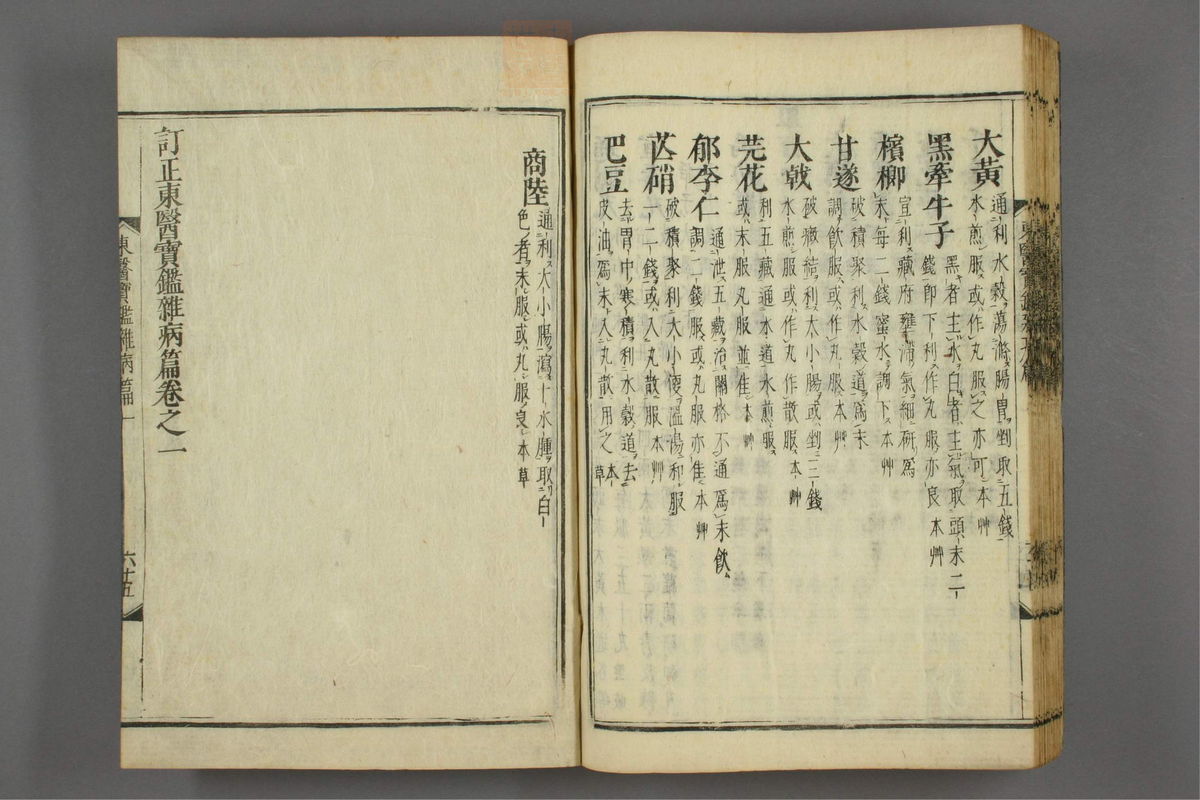 大黃 通利水穀蕩滌腸胃剉取五錢
水煎服或作丸服之亦可 本艸
黑牽牛子 黑者主水白者主氣取頭末二
錢卽下利作丸服亦良 本艸
檳榔 宣利藏府雍滯氣細硏爲
末每二錢蜜水調下 本艸
甘遂 破積聚利水穀道爲末
調飮服或作丸服 本艸
大戟 破癥結利大小腸或剉二三錢
水煎服或作丸作散服 本艸
芫花 利五藏通水道水煎服
或末服丸服並佳 本艸
郁李仁 通泄五藏治關格不通爲末飮
調二錢服或丸服亦佳 本艸
芒硝 破積聚利大小便溫湯和服
一二錢或入丸散服 本艸
巴豆 去胃中寒積利水穀道去
皮油爲末入丸散用之 本草
商陸 通利大小腸瀉十水腫取白
色者末服或丸服良 本草
訂正東醫寶鑑雜病篇卷之一
東醫寶鑑雜病篇一
六十五